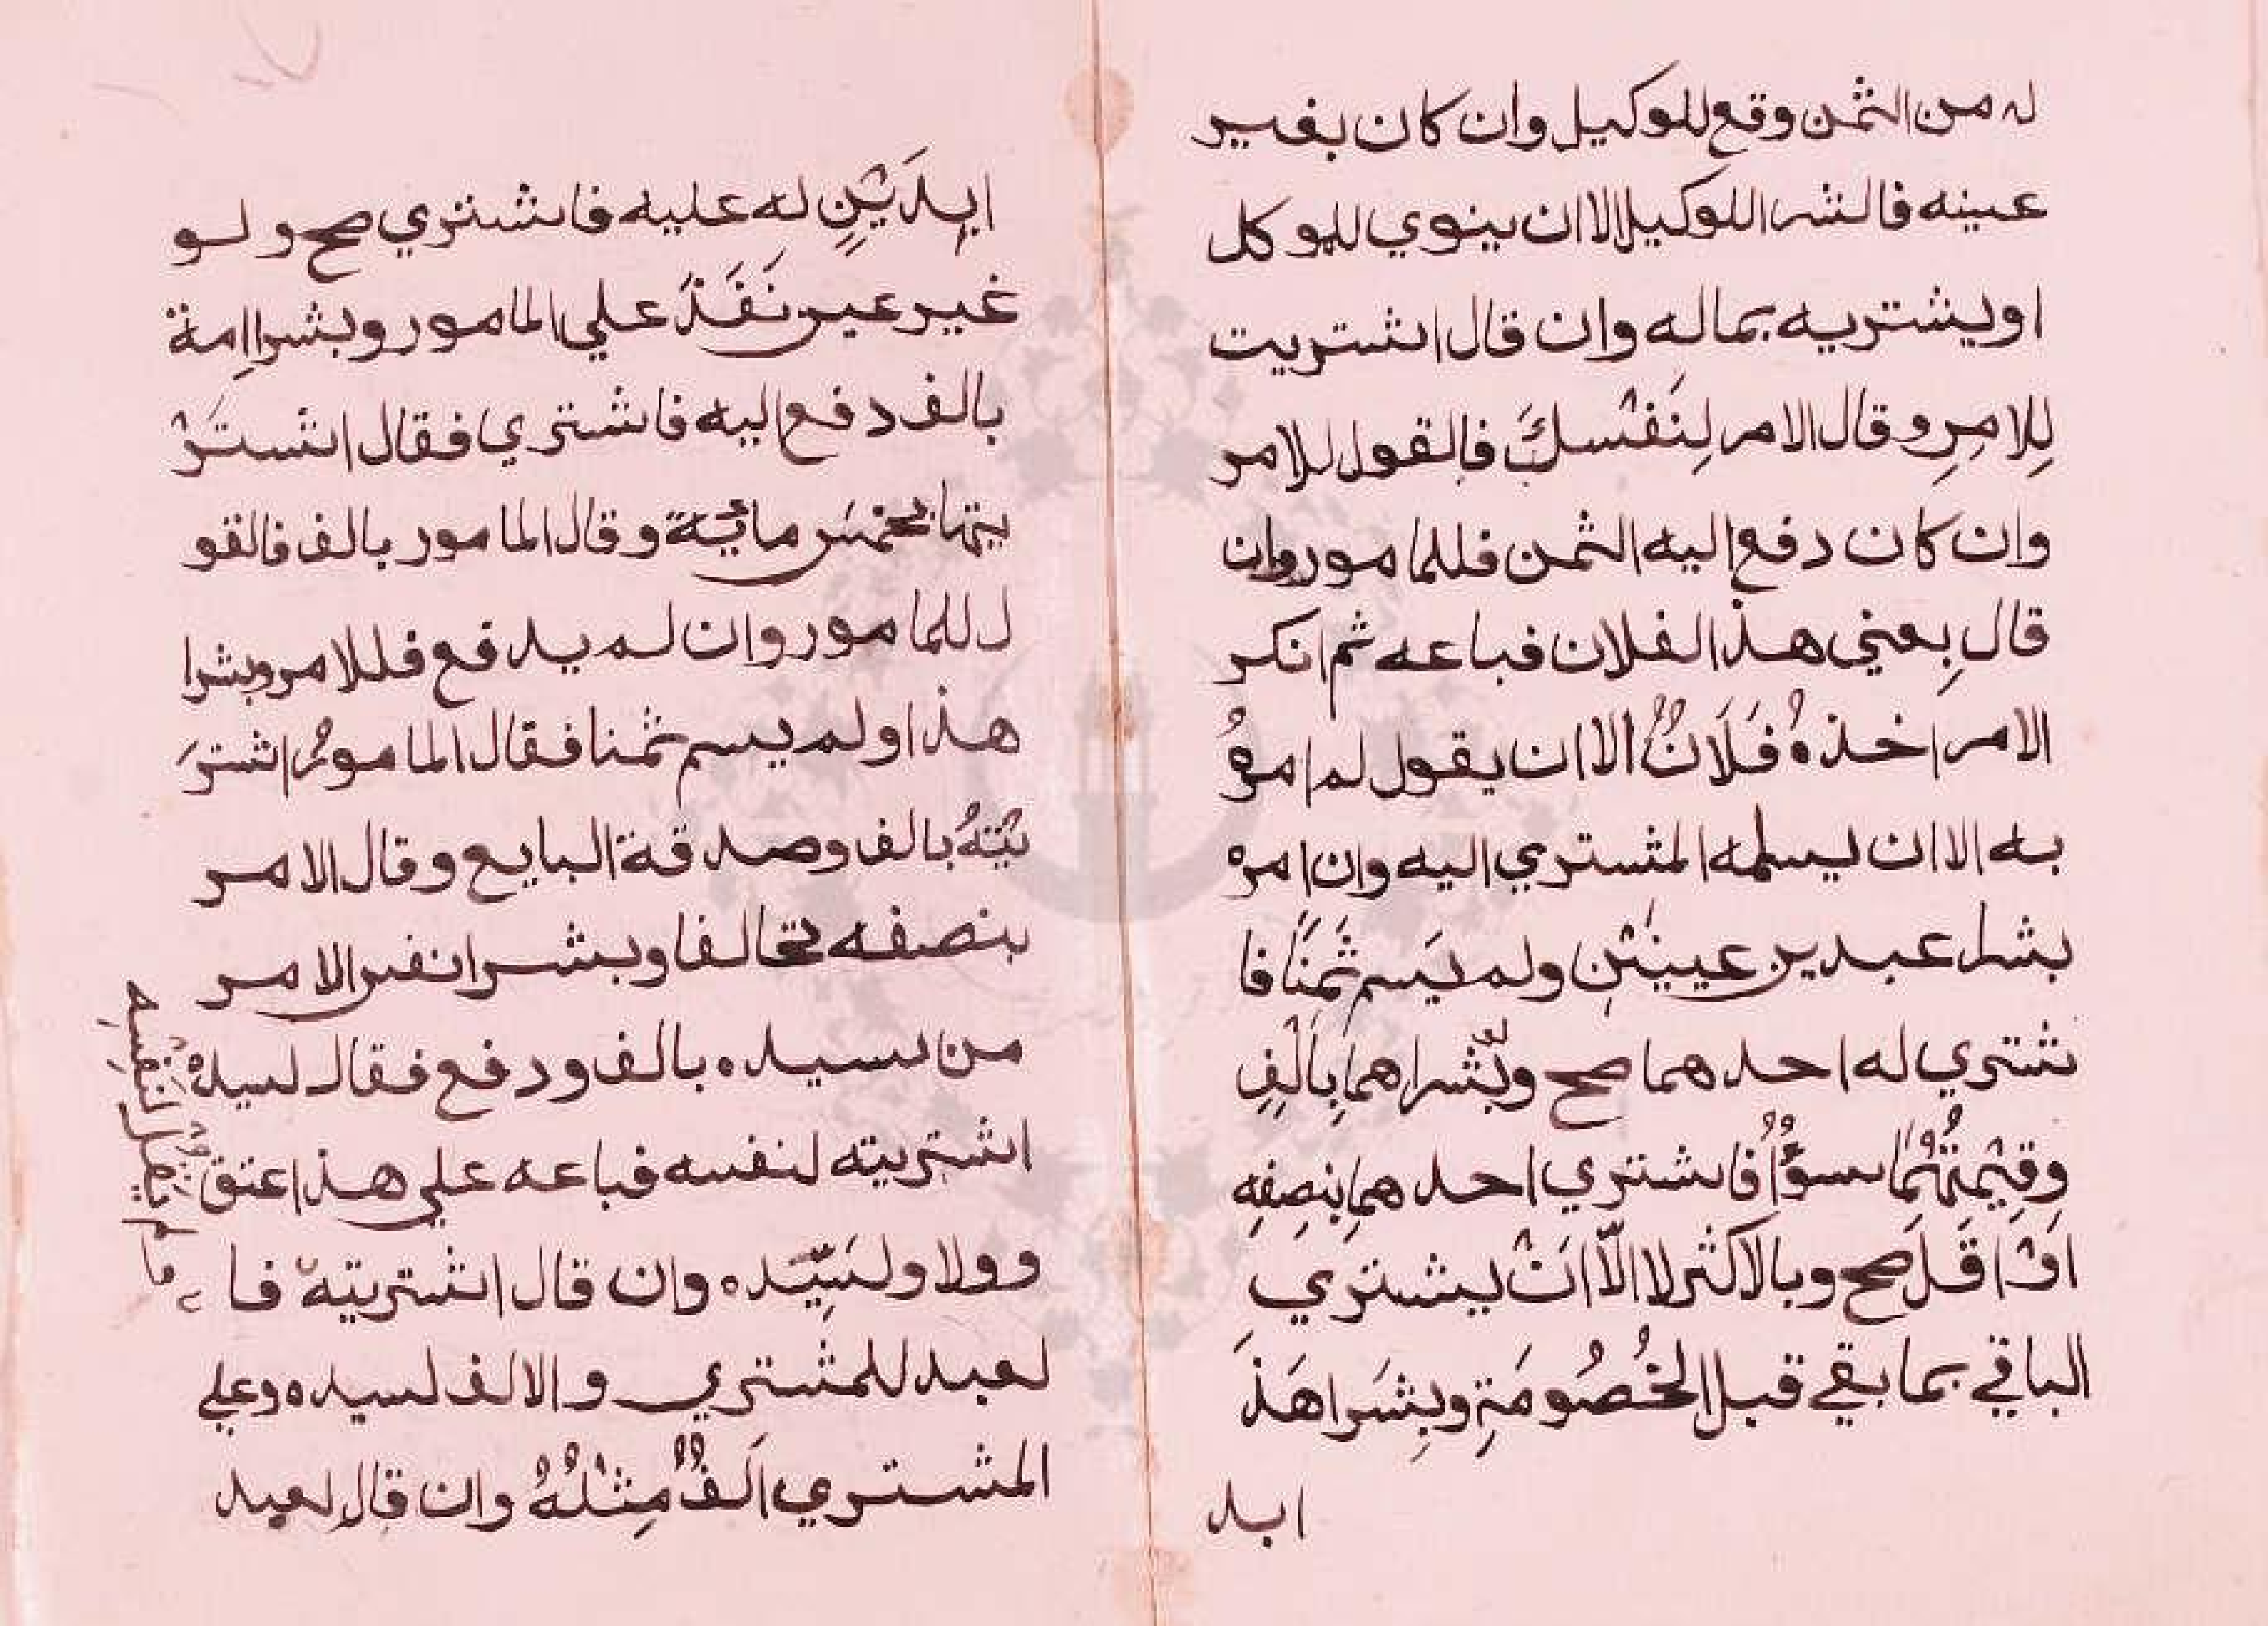 له من الثمن وقع للوكيل وان كان بغير
عينه فالشرا للوكيل الا ان ينوي للموكل
او يشتريه بماله وان قال اشتريت
لِلامِرِ وقال الامر لِنَفْسكَ فالقول للامر
وان كان دفع اليه الثمن فللمامور وان
قال بِعني هذا لفلان فباعه ثم انكر
الامر اخذهُ فَلَانٌ الا ان يقول لم امرهُ
به الا ان يسلمه المشتري اليه وان امره
بشرا عبدين عينيْنِ ولم يَسم ثَمَنًا فا
شتري له احدهما صح وبشراهما بِالْفِ
وقِيْمَتُهُمَا سوَؤٌا فاشتري احدهما بِنِصفِه
اوْ اقَلَ صح وبالاكثر لا الّا انْ يشتري
الباقي بما بقي قبل الخُصُومَةِ وبِشَرا هَذَ
ابد
ابِدَيْنٍ له عليه فاشتري صح ولو
غير عين نَفَذَ علي المامور وبشرا امة
بالف دفع اليه فاشتري فقال اشتَرْ
يتها بخمس مائة وقال المامور بالف فالقو
ل للمامور وان لم يدفع فللامر وبشرا
هذا ولم يسم ثمنا فقال المامورُ اشترَ
يْتهُ بالف وصدقة البايع وقال الامر
بنصفه تحالفا وبشرا نفس الامر
من سيده بالف ودفع فقال لسيدهْ
اشتريته لنفسه فباعه علي هذا عتق
وولاو لسَيِّده وان قال اشتريته فا
لعبد للمشتري والالف لسيده وعلي
المشتري اَلفٌ مِثْلُهُ وان قال لعبد